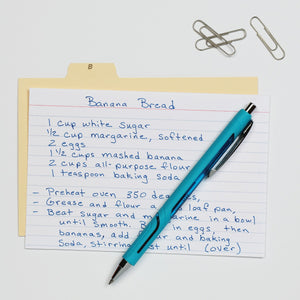 B
Banana Bread
1 cup white sugar
1/2 cup margarine, softened
2 eggs
1 1/2 cups mashed banana
2 cups all-purpose flour
1 teaspoon baking soda
- Preheat oven 350 degrees,
- Grease and flour a loaf pan,
- Beat sugar and margarine in a bowl
until smooth. Beat in eggs, then
bananas, add flour and baking
soda, stirring just until (over)